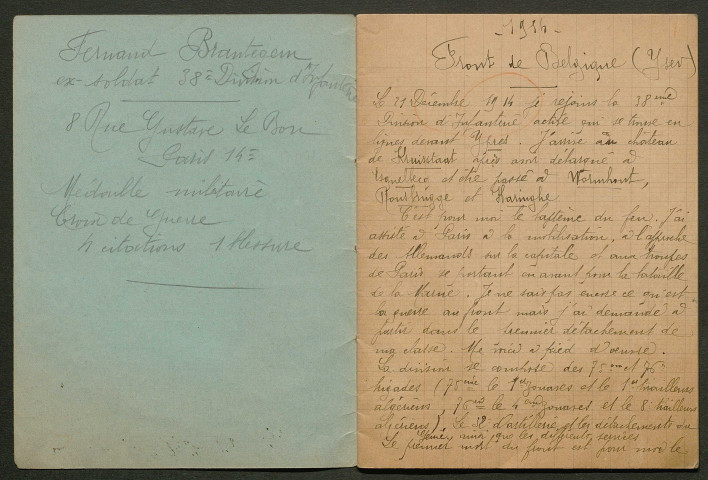 Fernand Branteaem
ex-soldat 38e Division d'Infanterie
8 Rue Gustave Le Bon
Paris 14e
Médaille militaire
Croix de Guerre
4 citations 1 blessure
- 1914 -
Front de Belgique (Yser)
Le 21 Décembre 1914 je rejoins la 38ème
Division d'Infanterie active qui se trouve en
lignes devant Ypres. J'arrive au château
de Kruisstaat après avoir débarqué à
et être passé à Wormhout,
Rousbrugge et Haringhe.
C'est pour moi le baptème du feu. J'ai
assisté à Paris à la mobilisation, à l'approche
des Allemands sur la capitale et aux troupes
de Paris se portant en avant pour la bataille
de la Marne. Je ne sais pas encore ce qu'est
la guerre au front mais j'ai demandé à
partir dans le premier détachement de
ma classe. Me voici à pied d'oeuvre.
La division se compose des 75me et 76e
brigades (75ème le 1er zouaves et le 1er tirailleurs
algériens 76me le 4ème zouaves et le 8e tirailleurs
algériens) Le 32e d'artillerie et les détachements du
Génie, ainsi que les différents services
Le premier mort du front est pour moi le